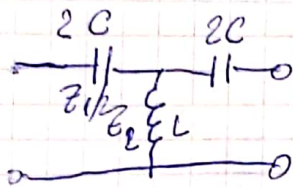 2C 2C
Z1/2
Z2 L